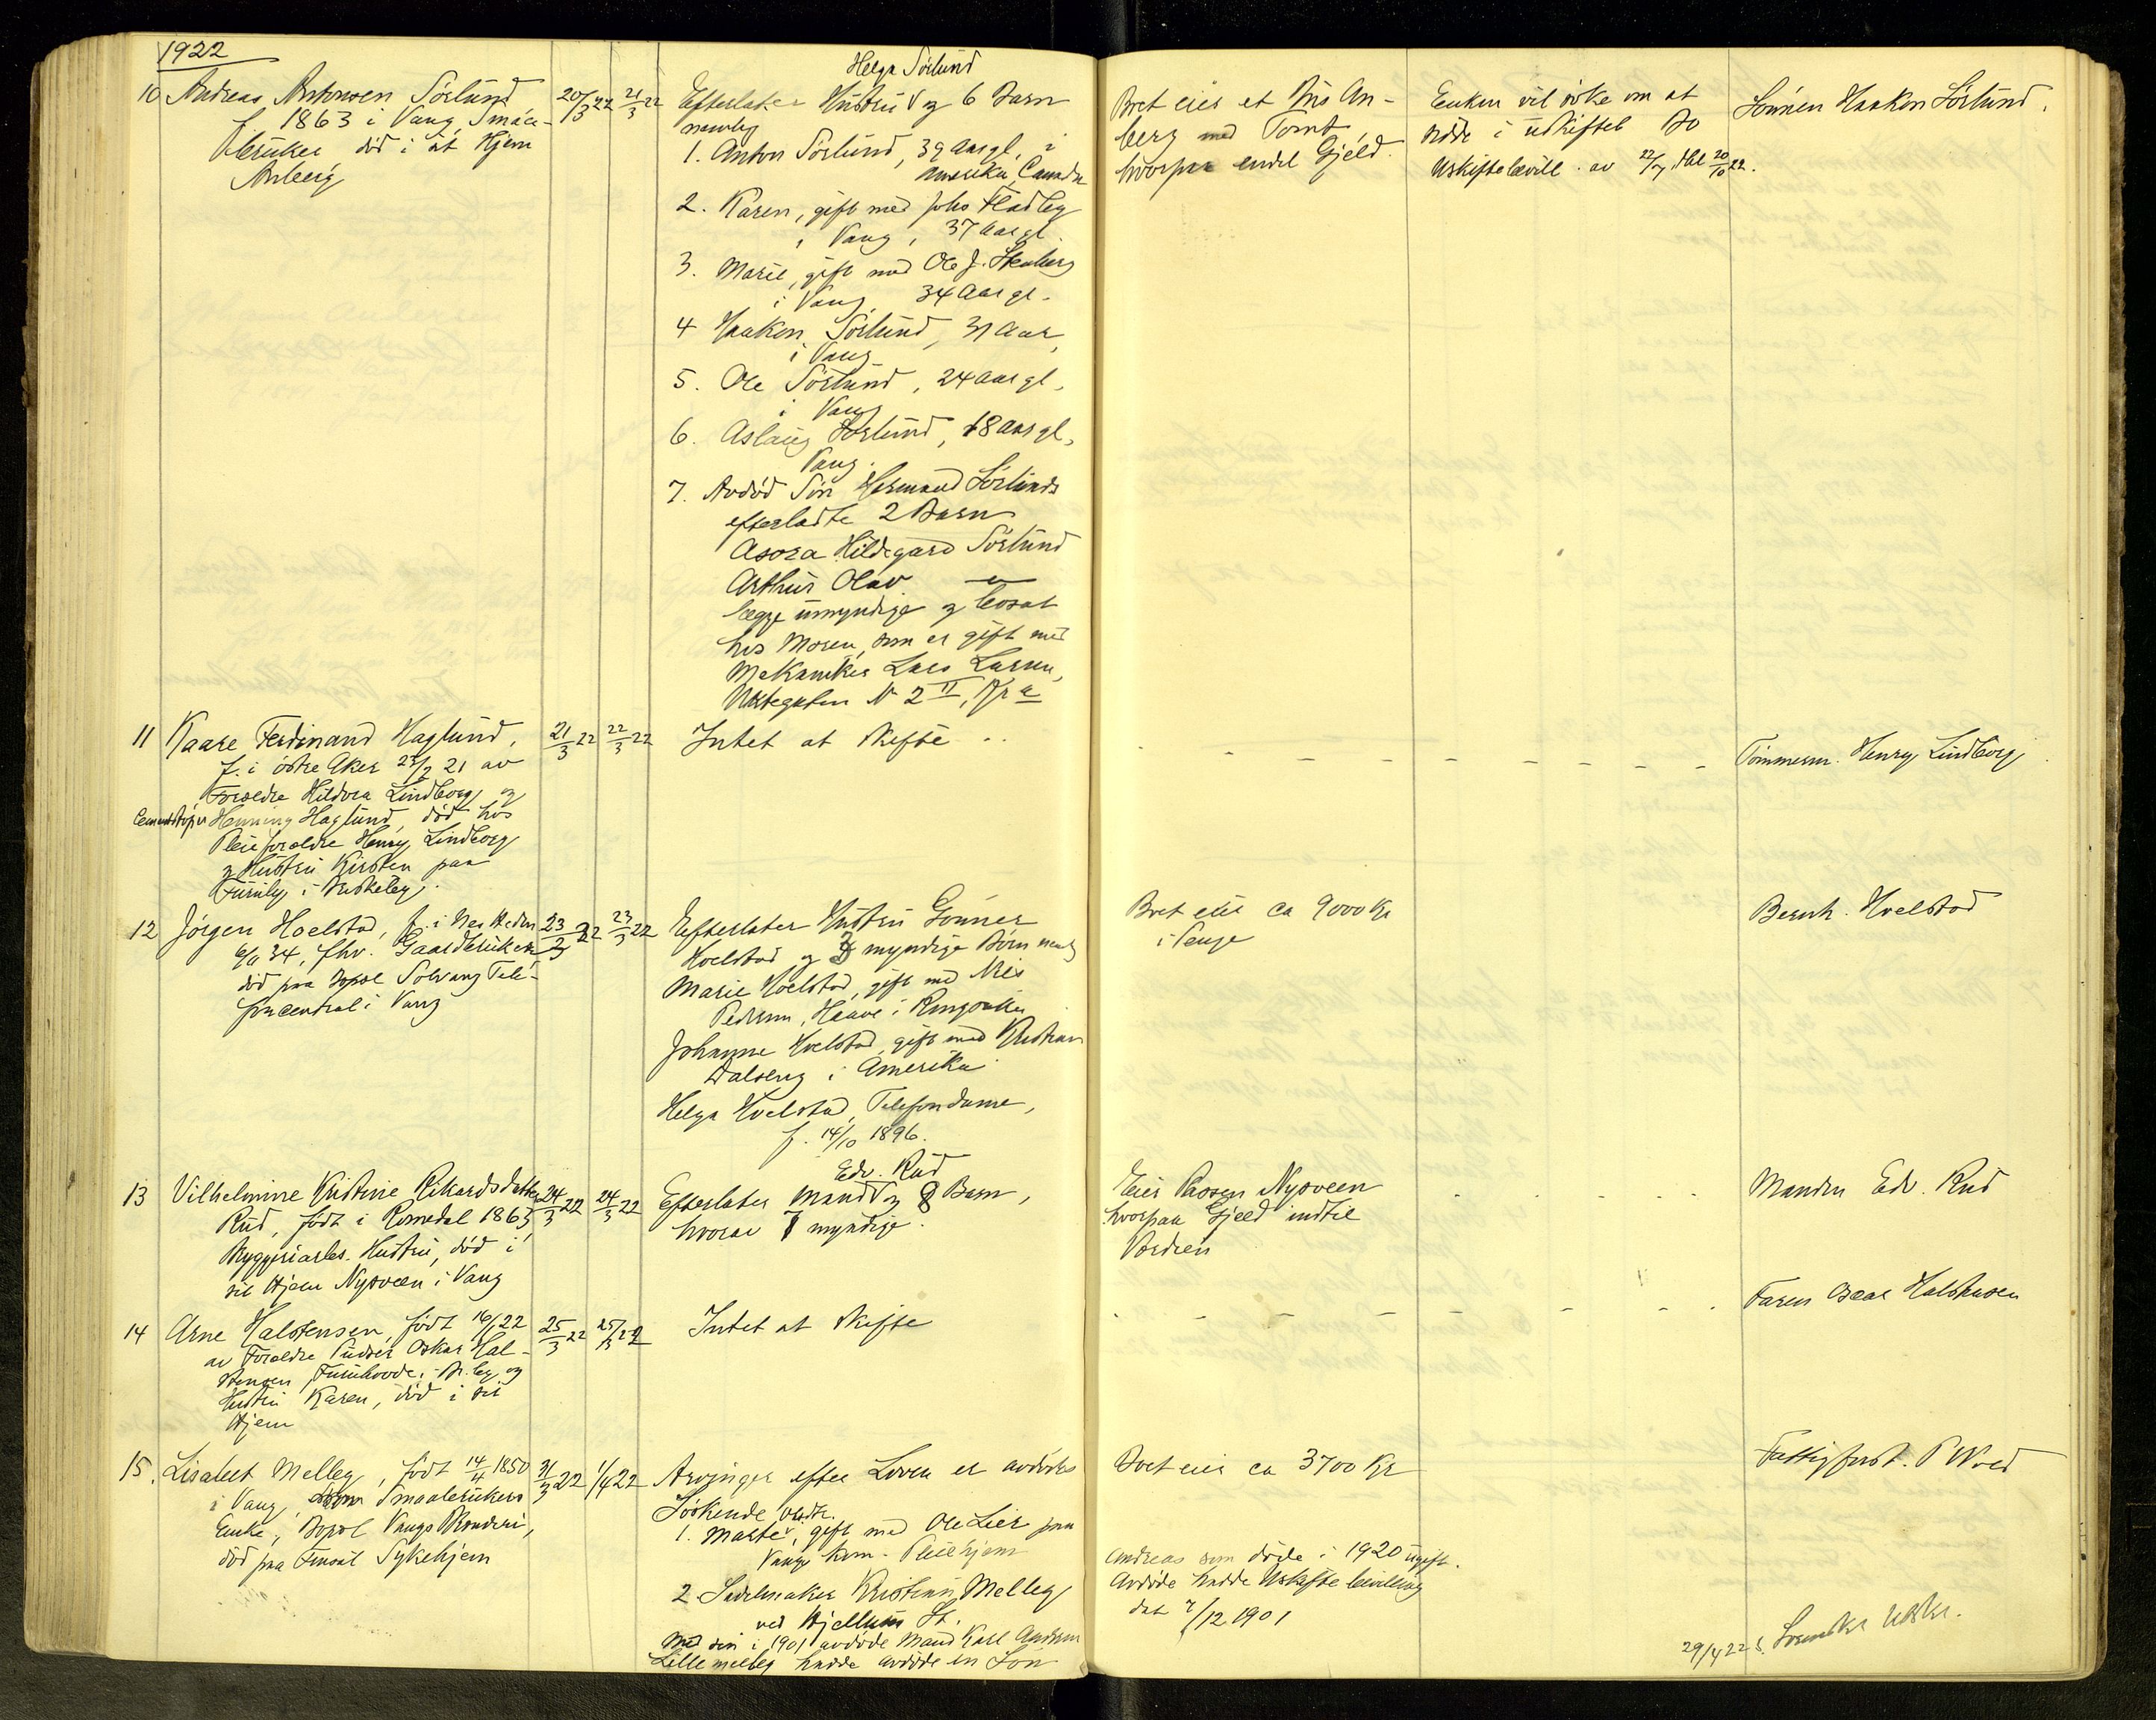 1922
10 Andreas Antonsen Sörlund
f. 1863 i Vang Smaa-
bruker, död i sit Hjem
Arberg
20/3 22
21/3 22
Helga Sörlund
Efterlater Hustru V og 6 Barn
nemlig
1. Anton Sörlund, 39 Aar gl, i
Amerika Canada
2. Karen, gift med Johs Fladby
i Vang, 37 Aar gl.
3. Marie, gift med Ole J. Stenberg
i Vang 34 Aar gl.
4 Haakon Sörlund, 31 Aar,
i Vang
5. Ole Sörlund, 24 Aar gl,
i Vang
6. Aslaug Sörlund, 18 Aar gl,
Vang.
7. Avdöd Sön Hermand Sörlunds
efterladte 2 Barn
Asora Hildegard Sörlund
Arthur Olav —"—
begge umyndige og bosat
hos Moren, som er gift med
Mekaniker Lars Larsen,
N 2 II,
Boet eier et Hus An-
berg med Tomt,
hvorpaa endel Gjeld.
Enken vil söke om at
sidde i uskiftet Bo
Uskiftebevill. av
Sönnen Haakon Sörlund.
11 Kaare Ferdinand Haglund,
f. i östre Aker 25/2 21 av
Foreldre Hildora Lindborg og
Cementstöper Henning Haglund, död hos
Pleieforeldre Henry Lindborg
og Hustru Kirsten paa
Furuly i Vuskeby.
21/3 22
22/3 22
Intet at skifte ..
Tömmerm. Henry Lindborg
12 Jörgen Hoelstad, f. i Nes Heden
34, fhv. Gaardbruker
död paa Bopæl Solvang Tele-
foncentral i Vang
23/3 22
23/3 22
Efterlater Hustru Gunner
Hoelstad og 3 myndige Börn neml
Marie Hoelstad, gift med Nils
Pedersen, Haave i Ringsaker
Johanne Hoelstad, gift med Kristian
Dalseng i Amerika
Helga Hoelstad, Telefondame,
f. 14/10 1896.
Boet eier ca 9000 Kr
i Penge
Bernh. Hoelstad
13 Vilhelmine Kristine Rikardsdatter
Rud, født i Romedal 1863,
Bryggeriarb. Hustru, död i
sit Hjem Nysveen i Vang
24/3 22
24/3 22
Edv. Rud
Efterlater Mand V og 8 Barn,
hvorav myndige.
Eier Plassen Nysveen
hvorpaa Gjeld indtil
Værdien
Manden Edv. Rud
14 Arne Halstensen, født 16/1 22
av Foreldre Pudser Oskar Hal-
stensen, Furuhovde i og
Hustru Karen, död i sit
Hjem
25/3 22
25/3 22
Intet at skifte
Faren Oscar Halstensen
15. Lisabet Melleby, født 14/4 1850
i Vang, Smaabrukers
Enke, Bopæl Vangs
död paa Finsal Sykehjem
31/3 22
1/4 22
Arvinger efter Loven er avdödes
Söskende
1. Marte, gift med Ole Lier paa
Vangs kom. Pleiehjem
2 Sadelmaker Kristian Melleby
ved Hjellum St.
Med sin i 1901 avdöde Mand Karl Andersen
Lillemelleby hadde avdöde en Sön
Boet eier ca 3700 Kr
Andreas som döde i 1920 ugift.
Avdöde hadde Uskifte bevilling
dat /12 1901
Fattigforst. P Wold
29/4 22 s. Utskr.